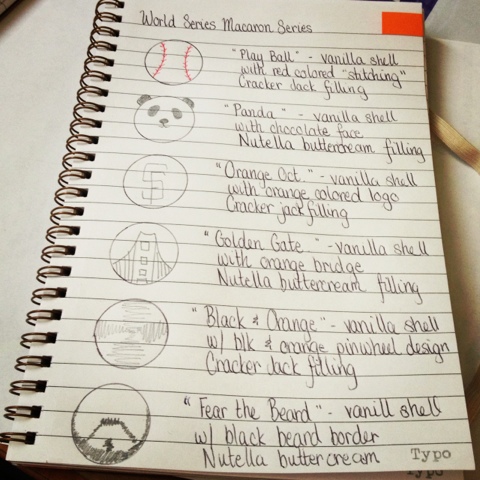 World Series Macaron Series
"Play Ball" - vanilla shell
with red colored "stitching"
Cracker Jack filling
"Panda" - vanilla shell
with chocolate face
Nutella buttercream filling
SF
"Orange Oct." - vanilla shell
with orange colored logo
Cracker jack filling
"Golden Gate" - vanilla shell
with orange bridge
Nutella buttercream filling
"Black & Orange" - vanilla shell
w/ blk & orange pinwheel design
Cracker Jack filling
"Fear the Beard" - vanill shell
w/ black beard border
Nutella buttercream
Typo
Typo